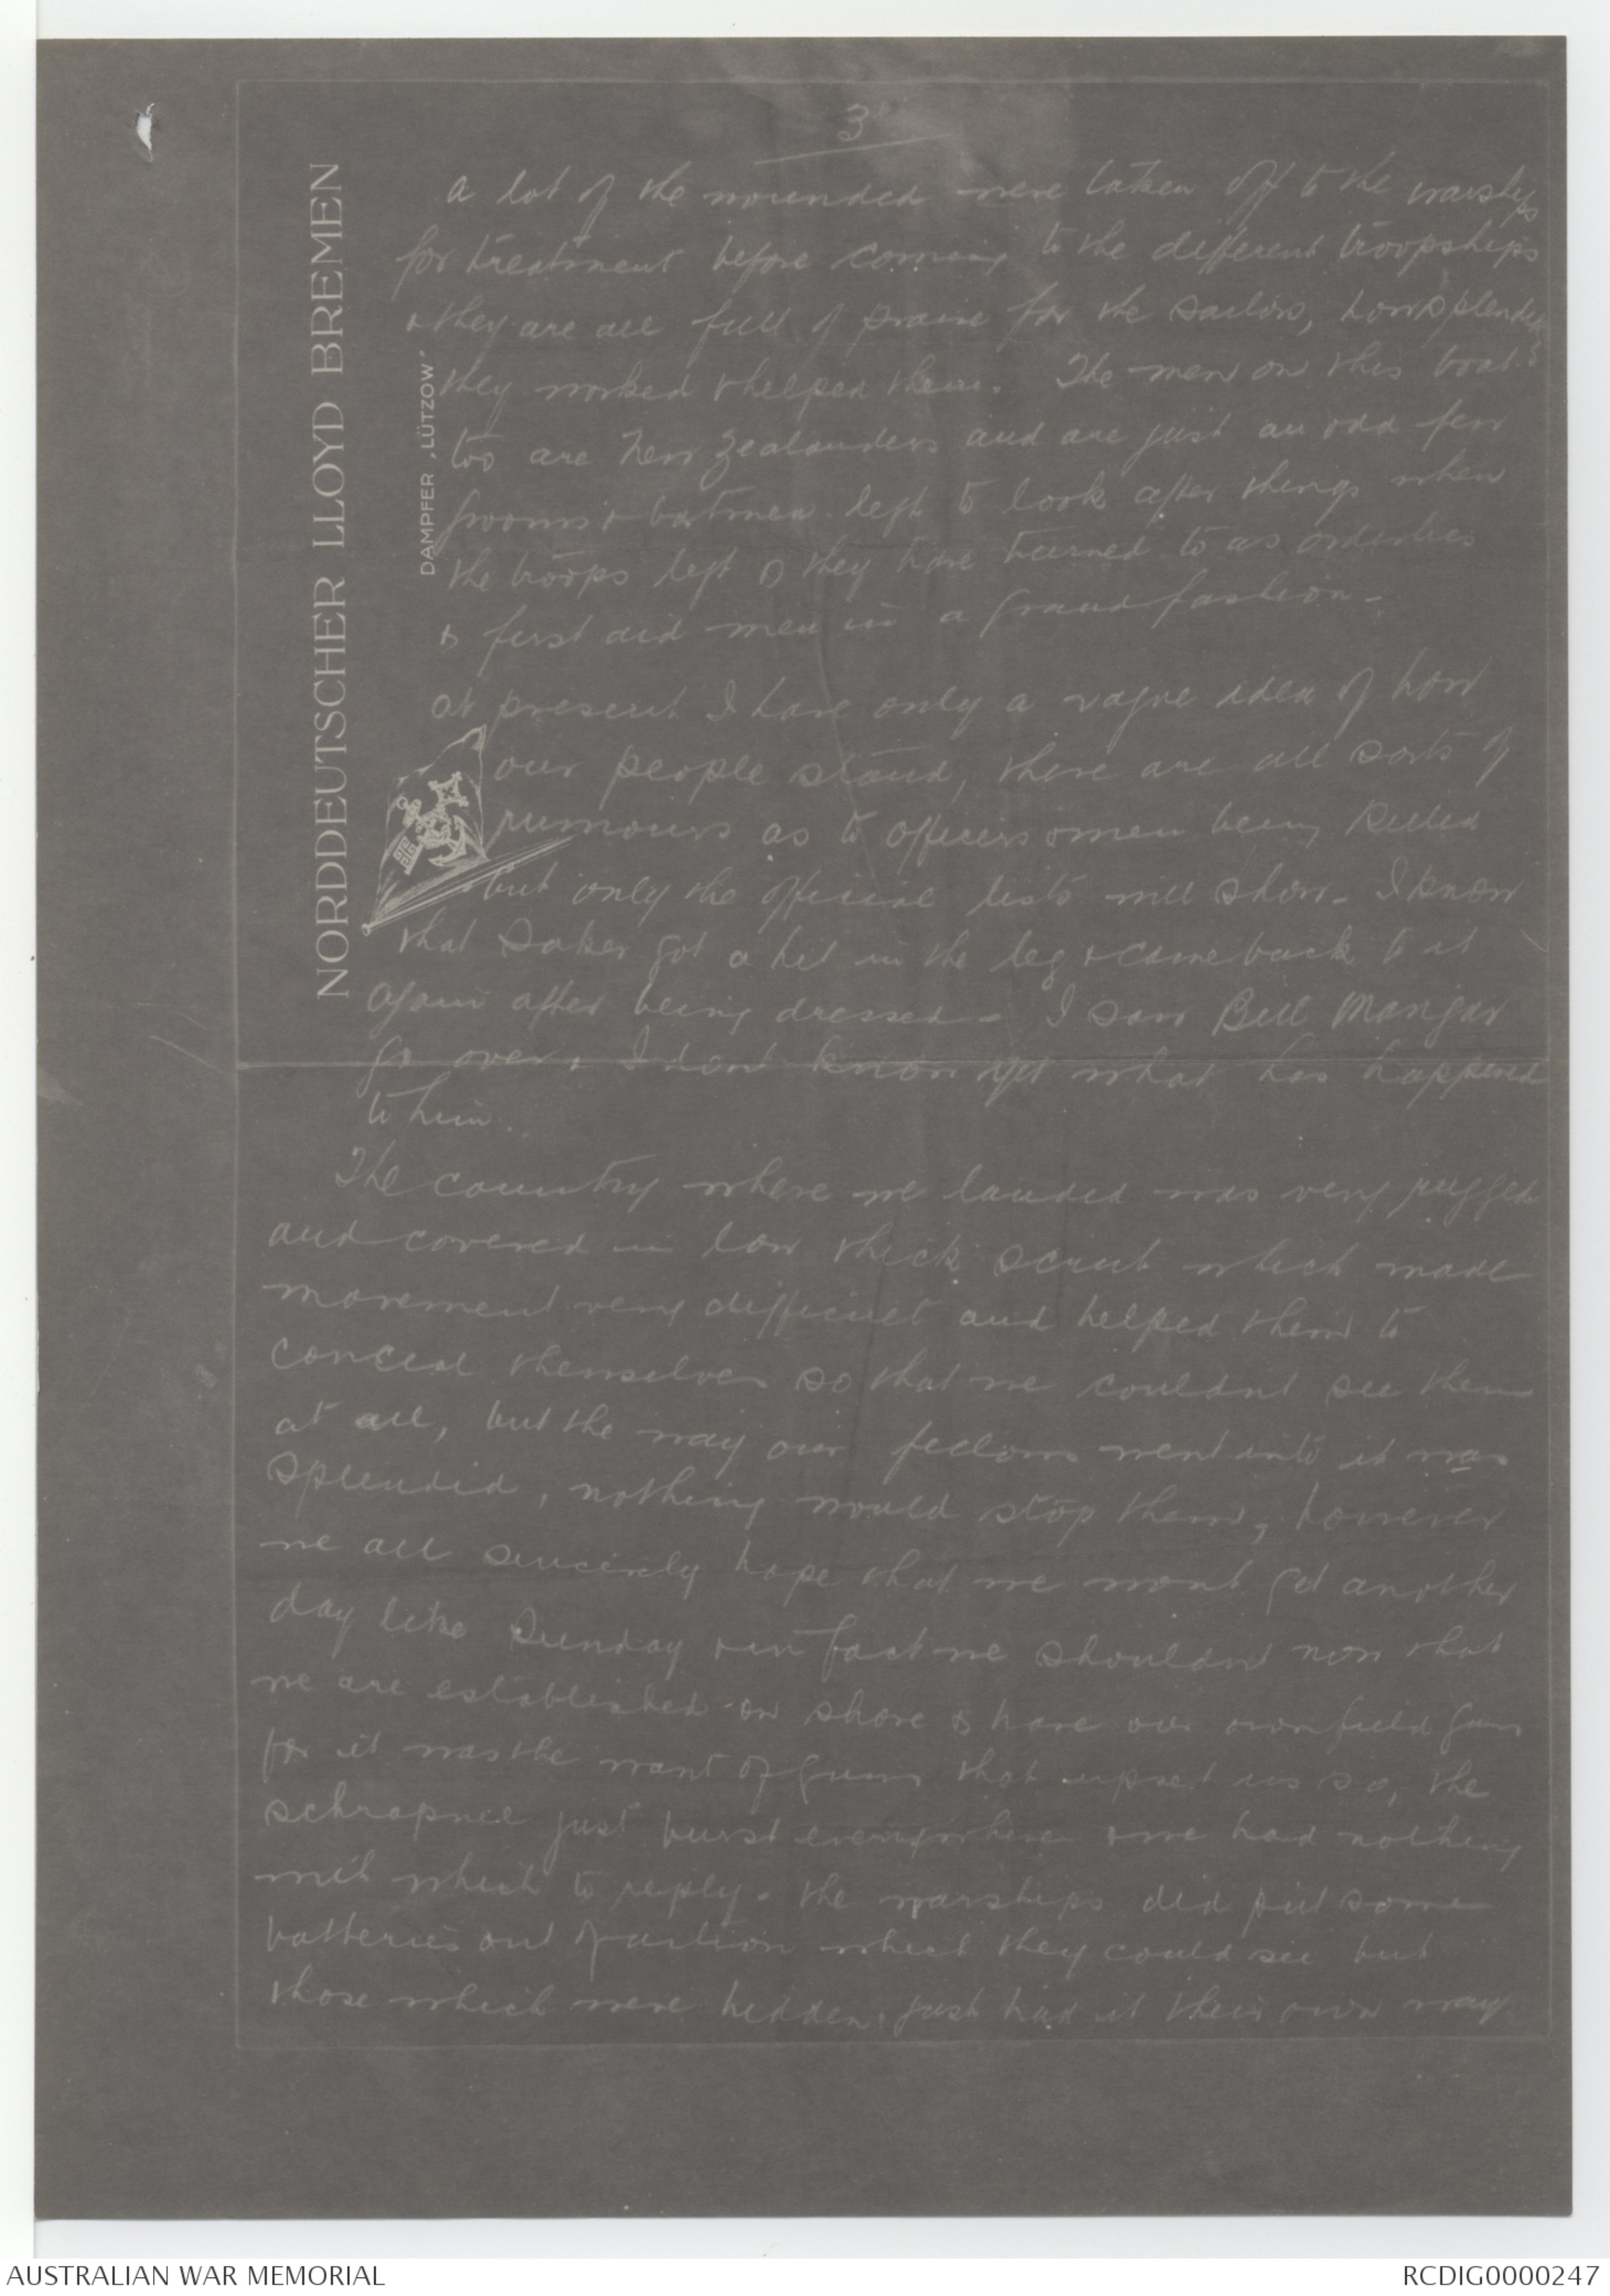 3
NORDDEUTSCHER LLOYD BREMEN
DAMPFER „LÜTZOW"
A lot of the wounded were taken off to the warships
for treatment before coming to the different troopships
& they are all full of praise for the sailors, how splendidly
they worked & helped them. The men on this boat
too are New Zealanders and are just an odd few
grooms & batmen left to look after things when
the troops left & they have turned to as orderlies
& first aid men in a grand fashion -
At present I have only a vague idea of how
our people stand, there are all sorts of
rumours as to officers & men being killed
but only the official lists will show - I know
that Saker got a hit in the leg & came back to it
again after being dressed - I saw Bill Mangar
go over & I dont know yet what has happened
to him.
The country where we landed was very rugged
and covered in low thick scrub which made
movement very difficult and helped them to
conceal themselves so that we couldnt see them
at all, but the way our fellows went into it was
splendid, nothing would stop them, however
we all sincerely hope that we wont get another
day like Sunday & in fact we shouldnt now that
we are established on shore & have our own field guns
for it was the want of guns that upset us so, the
schrapnel just burst everywhere & we had nothing
with which to reply - the warships did put some
batteries out of action which they could see but
those which were hidden, just had it their own way
AUSTRALIAN WAR MEMORIAL
RCDIG0000247